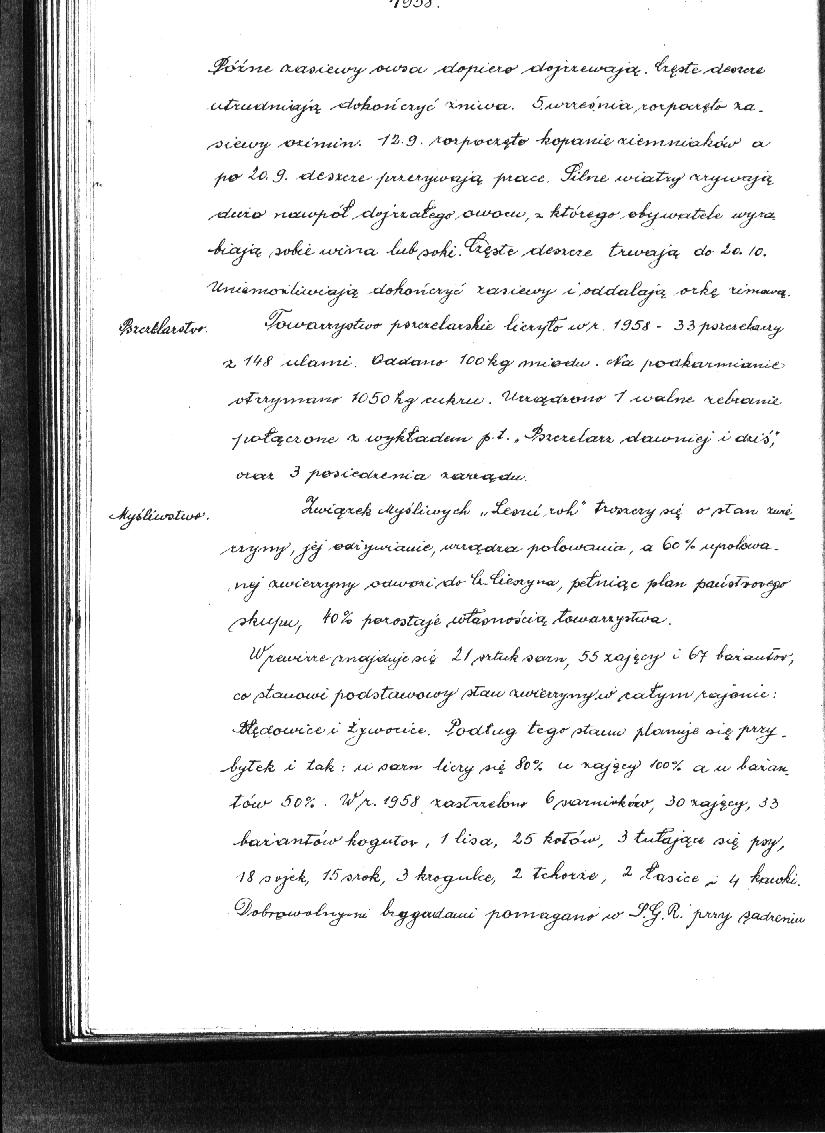 1958.
Późne zasiewy owsa dopiero dojrzewają. Częste deszcze
utrudniają dokończyć żniwa. 5. września rozpoczęto za-
siewy ozimin. 12.9. rozpoczęto kopanie ziemniaków a
po 20.9. deszcze przerywają prace. Silne wiatry zrywają
dużo nawpół dojrzałego owocu, z którego obywatele wyra
biają sobie wina lub soki. Częste deszcze trwają do 20.10.
Uniemożliwiają dokończyć zasiewy i oddalają orkę zimową.
Pszczelarstwo. Towarzystwo pszczelarskie liczyło w r. 1958 - 33 pszczelarzy
z 148 ulami. Oddano 100 kg miodu. Na podkarmianie
otrzymano 1050 kg cukru. Urządzono 1 walne zebranie
połączone z wykładem p.t. „Pszczelarz dawniej i dziś",
oraz 3 posiedzenia zarządu.
Myśliwstwo. Związek Myśliwych „Lesní roh" troszczy się o stan zwie-
rzyny, jej odżywianie, urządza polowania, a 60% upolowa-
nej zwierzyny odwozi do Cz. Cieszyna, pełniąc plan państwowego
skupu, 40% pozostaje własnością towarzystwa.
W rewirze znajduje się 21 sztuk sarn, 55 zajęcy i 67 bażantów,
co stanowi podstawowy stan zwierzyny w całym rajonie:
Błędowice i Żywocice. Podług tego stanu planuje się przy-
bytek i tak: u sarn liczy się 80% u zajęcy 100% a u bażan-
tów 50%. W r. 1958 zastrzelono 6 sarników, 30 zajęcy, 33
bażantów kogutov, 1 lisa, 25 kotów, 3 tułające się psy,
18 sojek, 15 srok, 3 krogulce, 2 tchórze, 2 łasice i 4 kawki.
Dobrowolnymi brygadami pomagano w S.G.R. przy sadzeniu